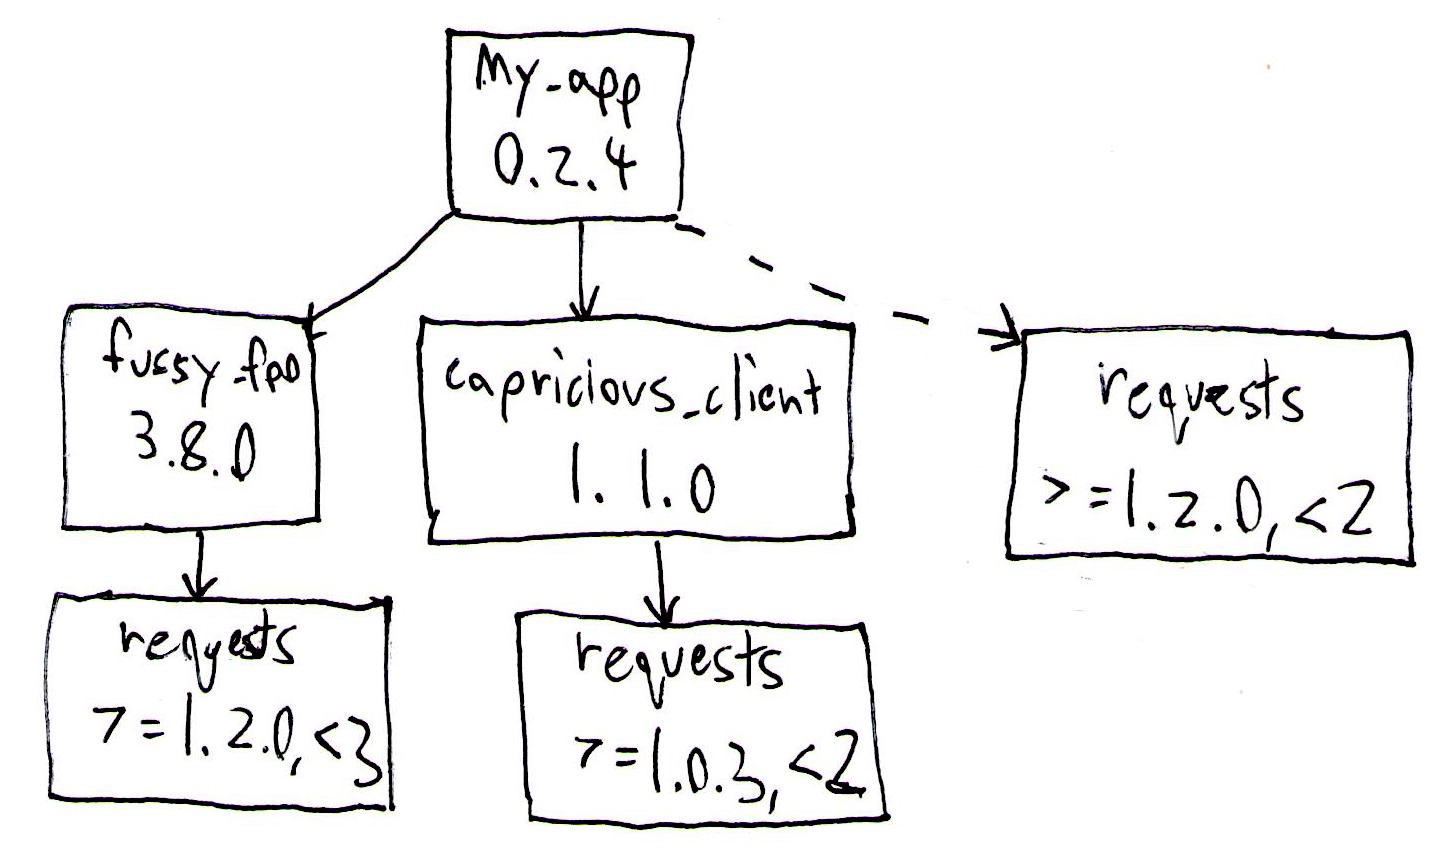 My_app
0.2.4
fussy_foo
3.8.0
capricious_client
1.1.0
requests
>=1.2.0,<2
requests
>=1.2.0,<3
requests
>=1.0.3,<2